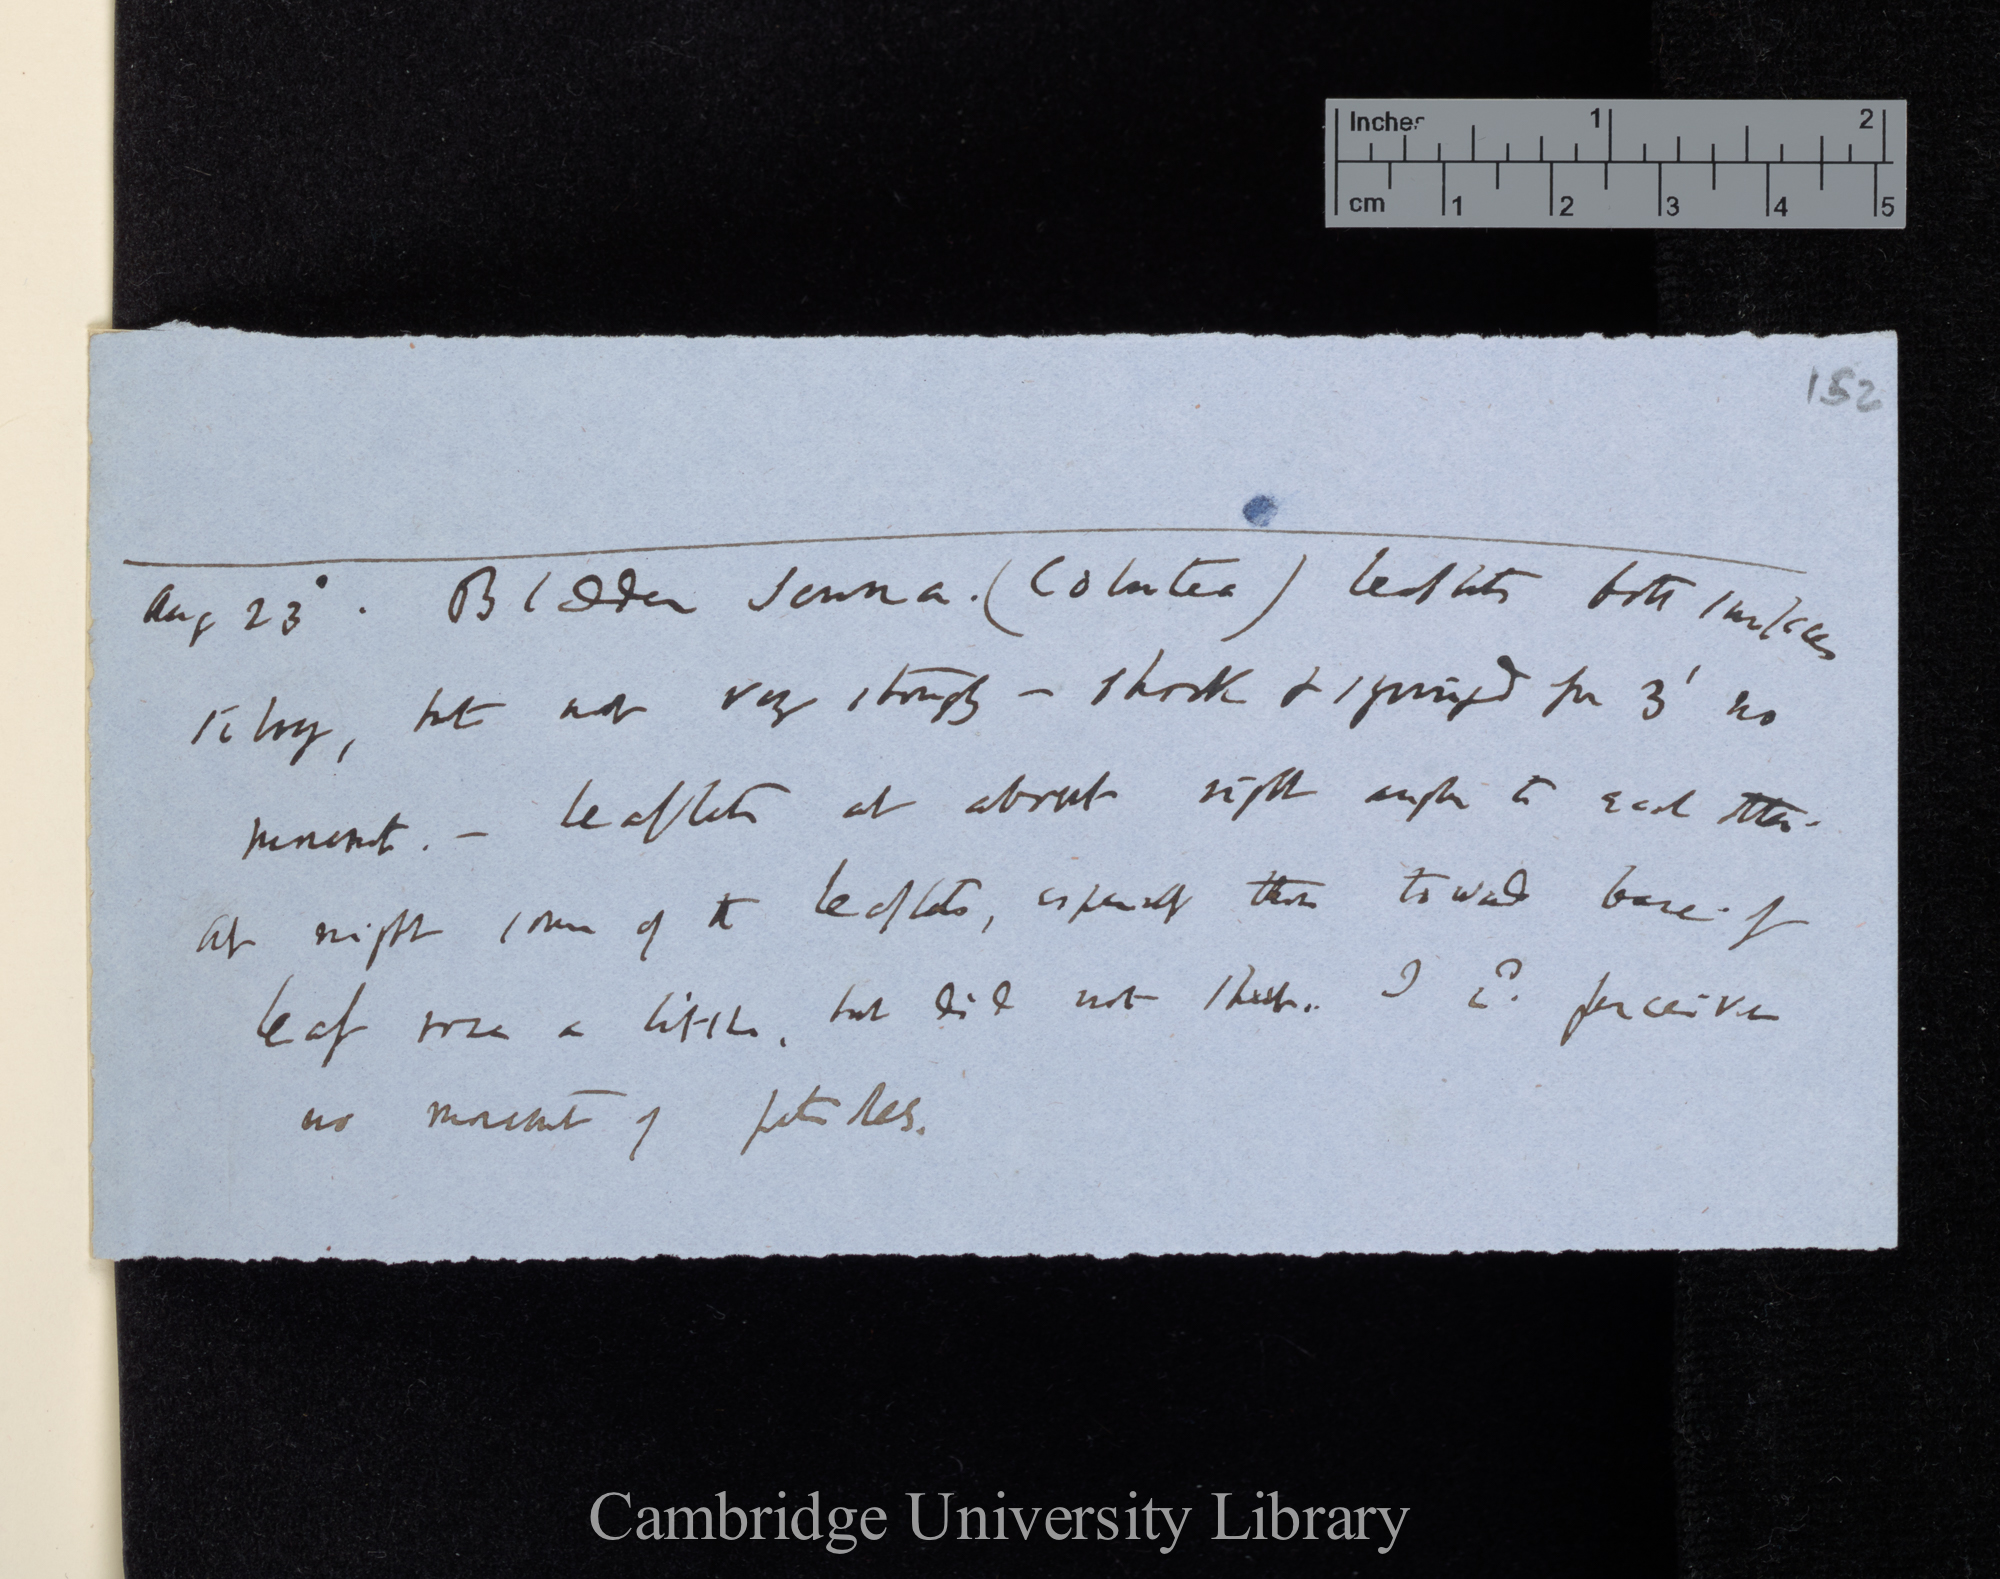 Inches 1 2
cm 1 2 3 4 5
152
Aug 23°. Bladder Senna. (Colutea) leaflets both surfaces
silvery, but not very strongly — shook & syringed for 3' no
movement. — leaflets at about right angle to each other.
At night some of the leaflets, especially those toward base of
leaf rose a little, but did not shut. I cd. perceive
no movement of petioles.
Cambridge University Library